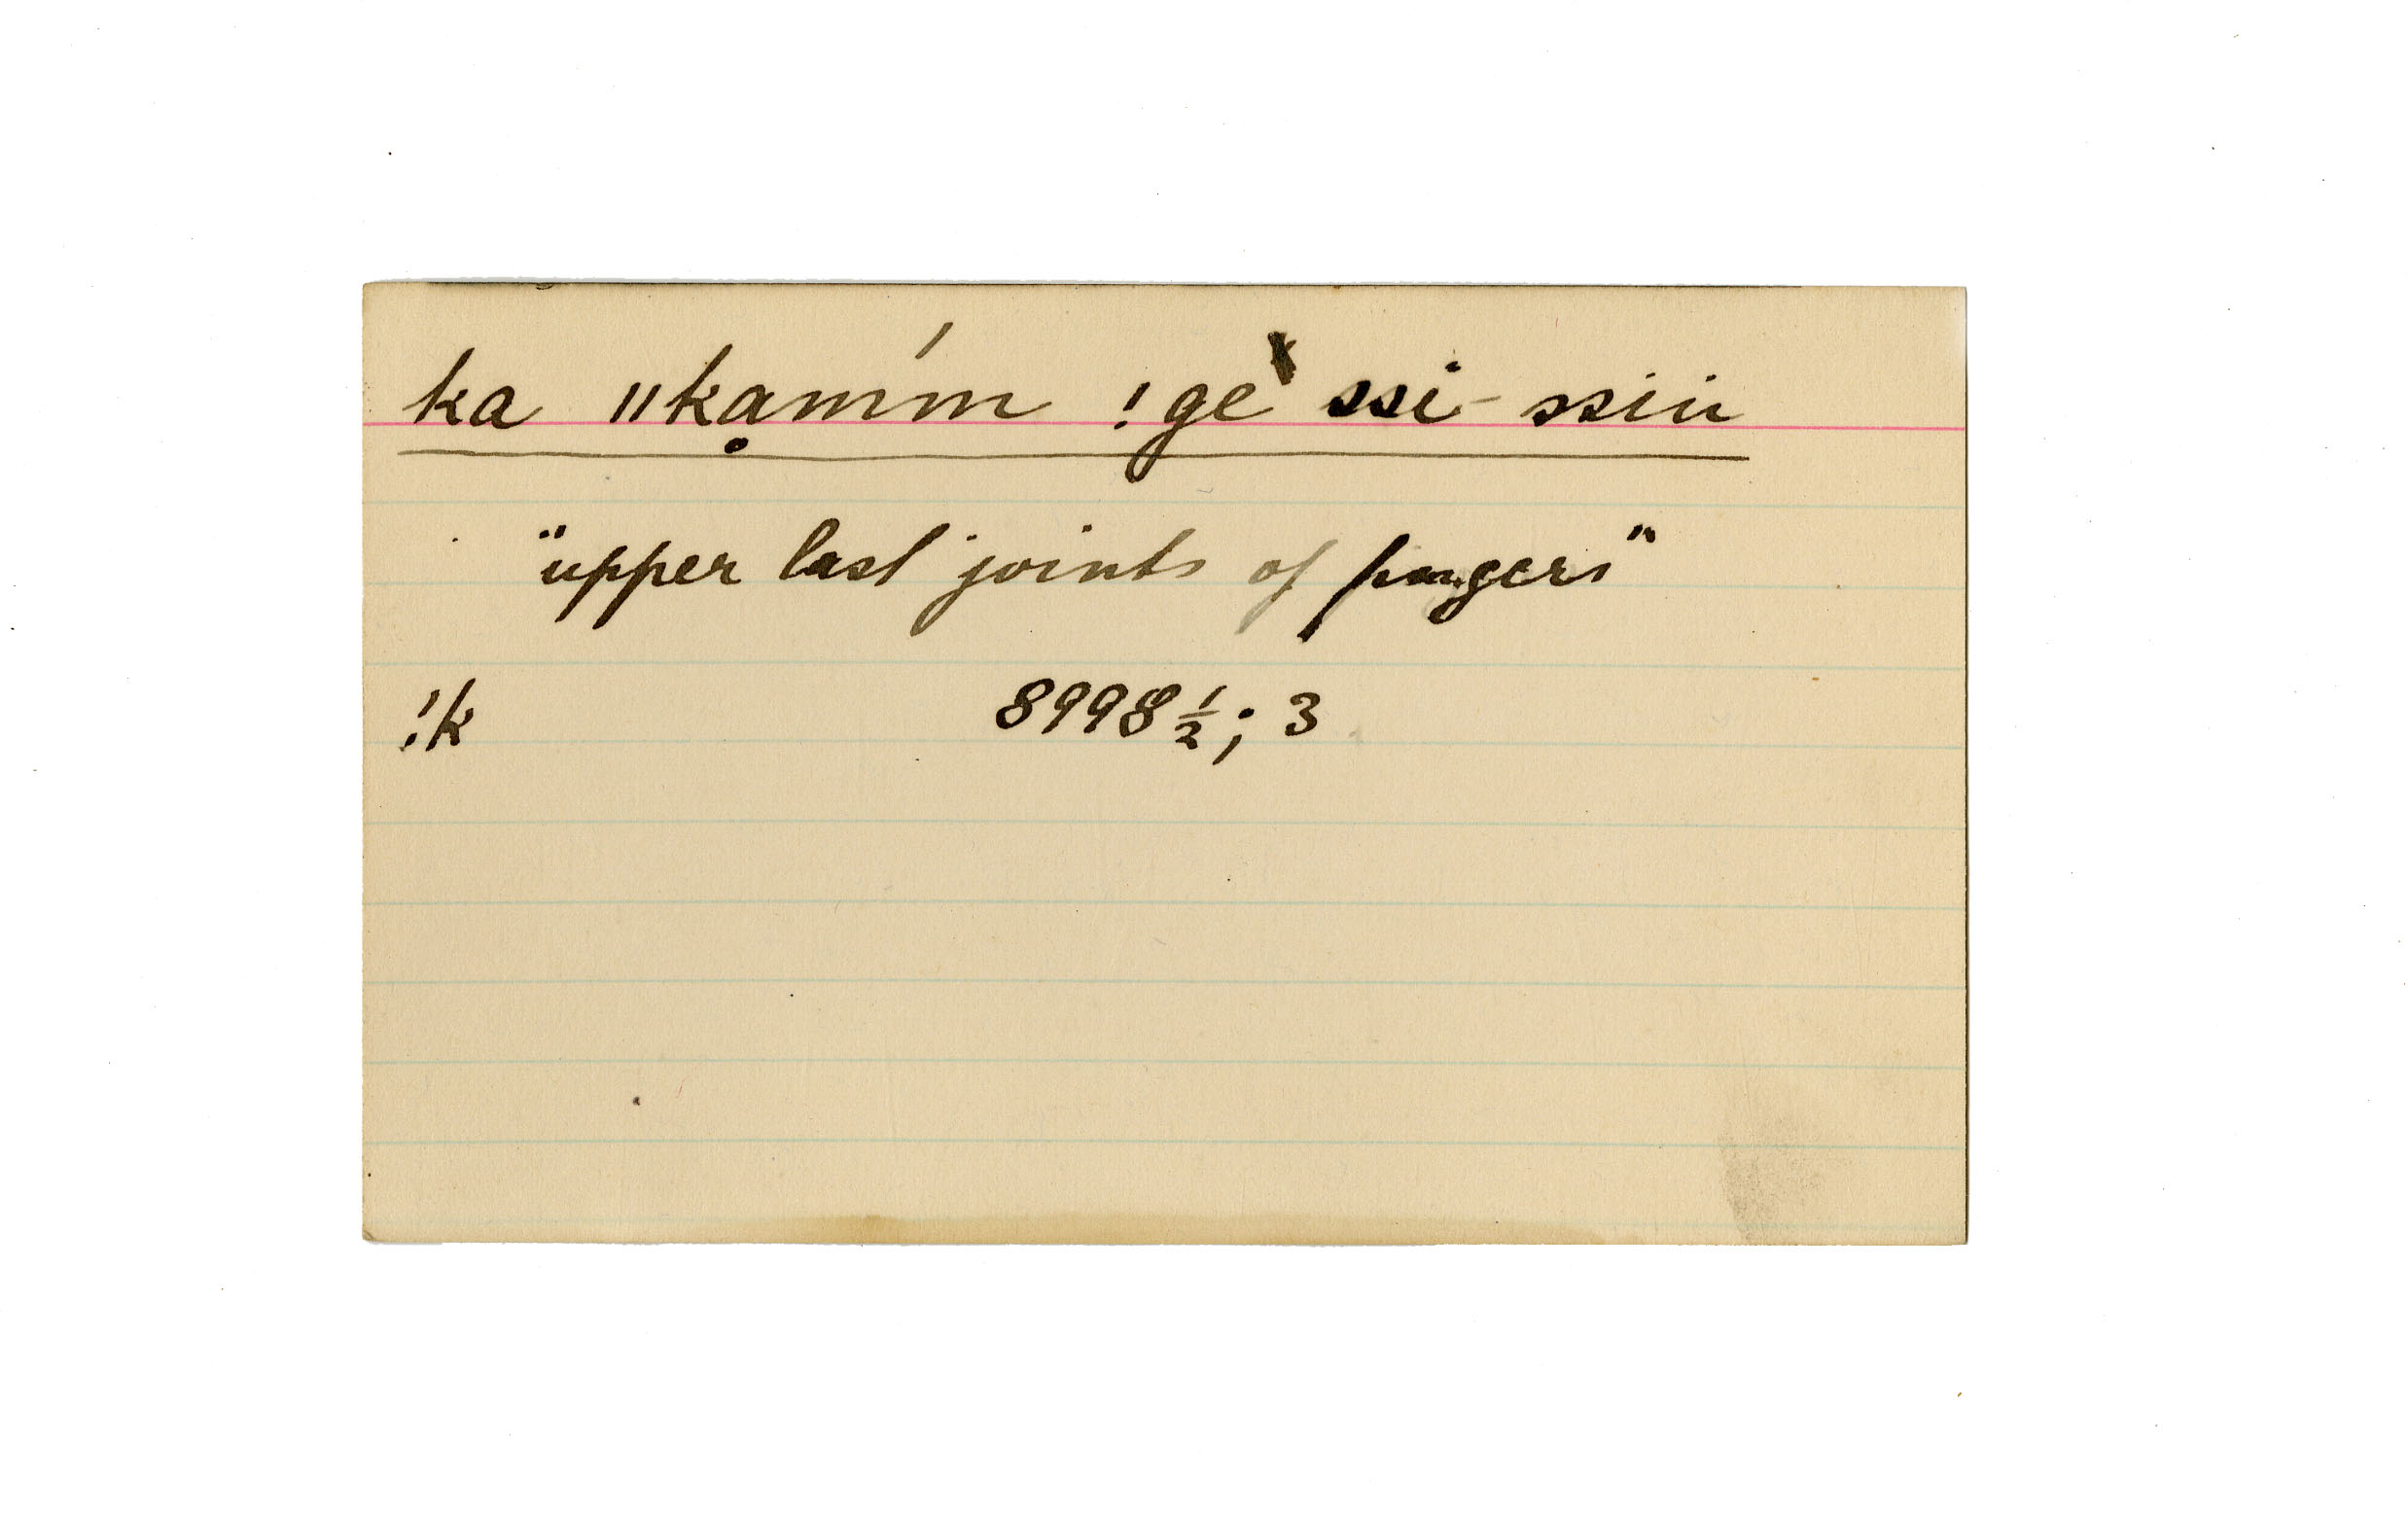 ka ǁkạmḿ !ge ssi-ssin
"upper last joints of fingers"
!k 8998½; 3